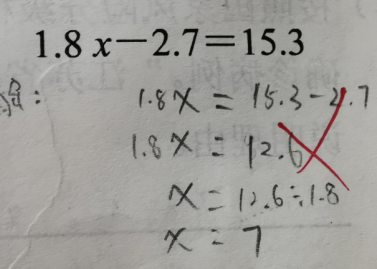 1.8x-2.7=15.3
解: 1.8x = 15.3-2.7
1.8x = 12.6
x = 12.6÷1.8
x = 7